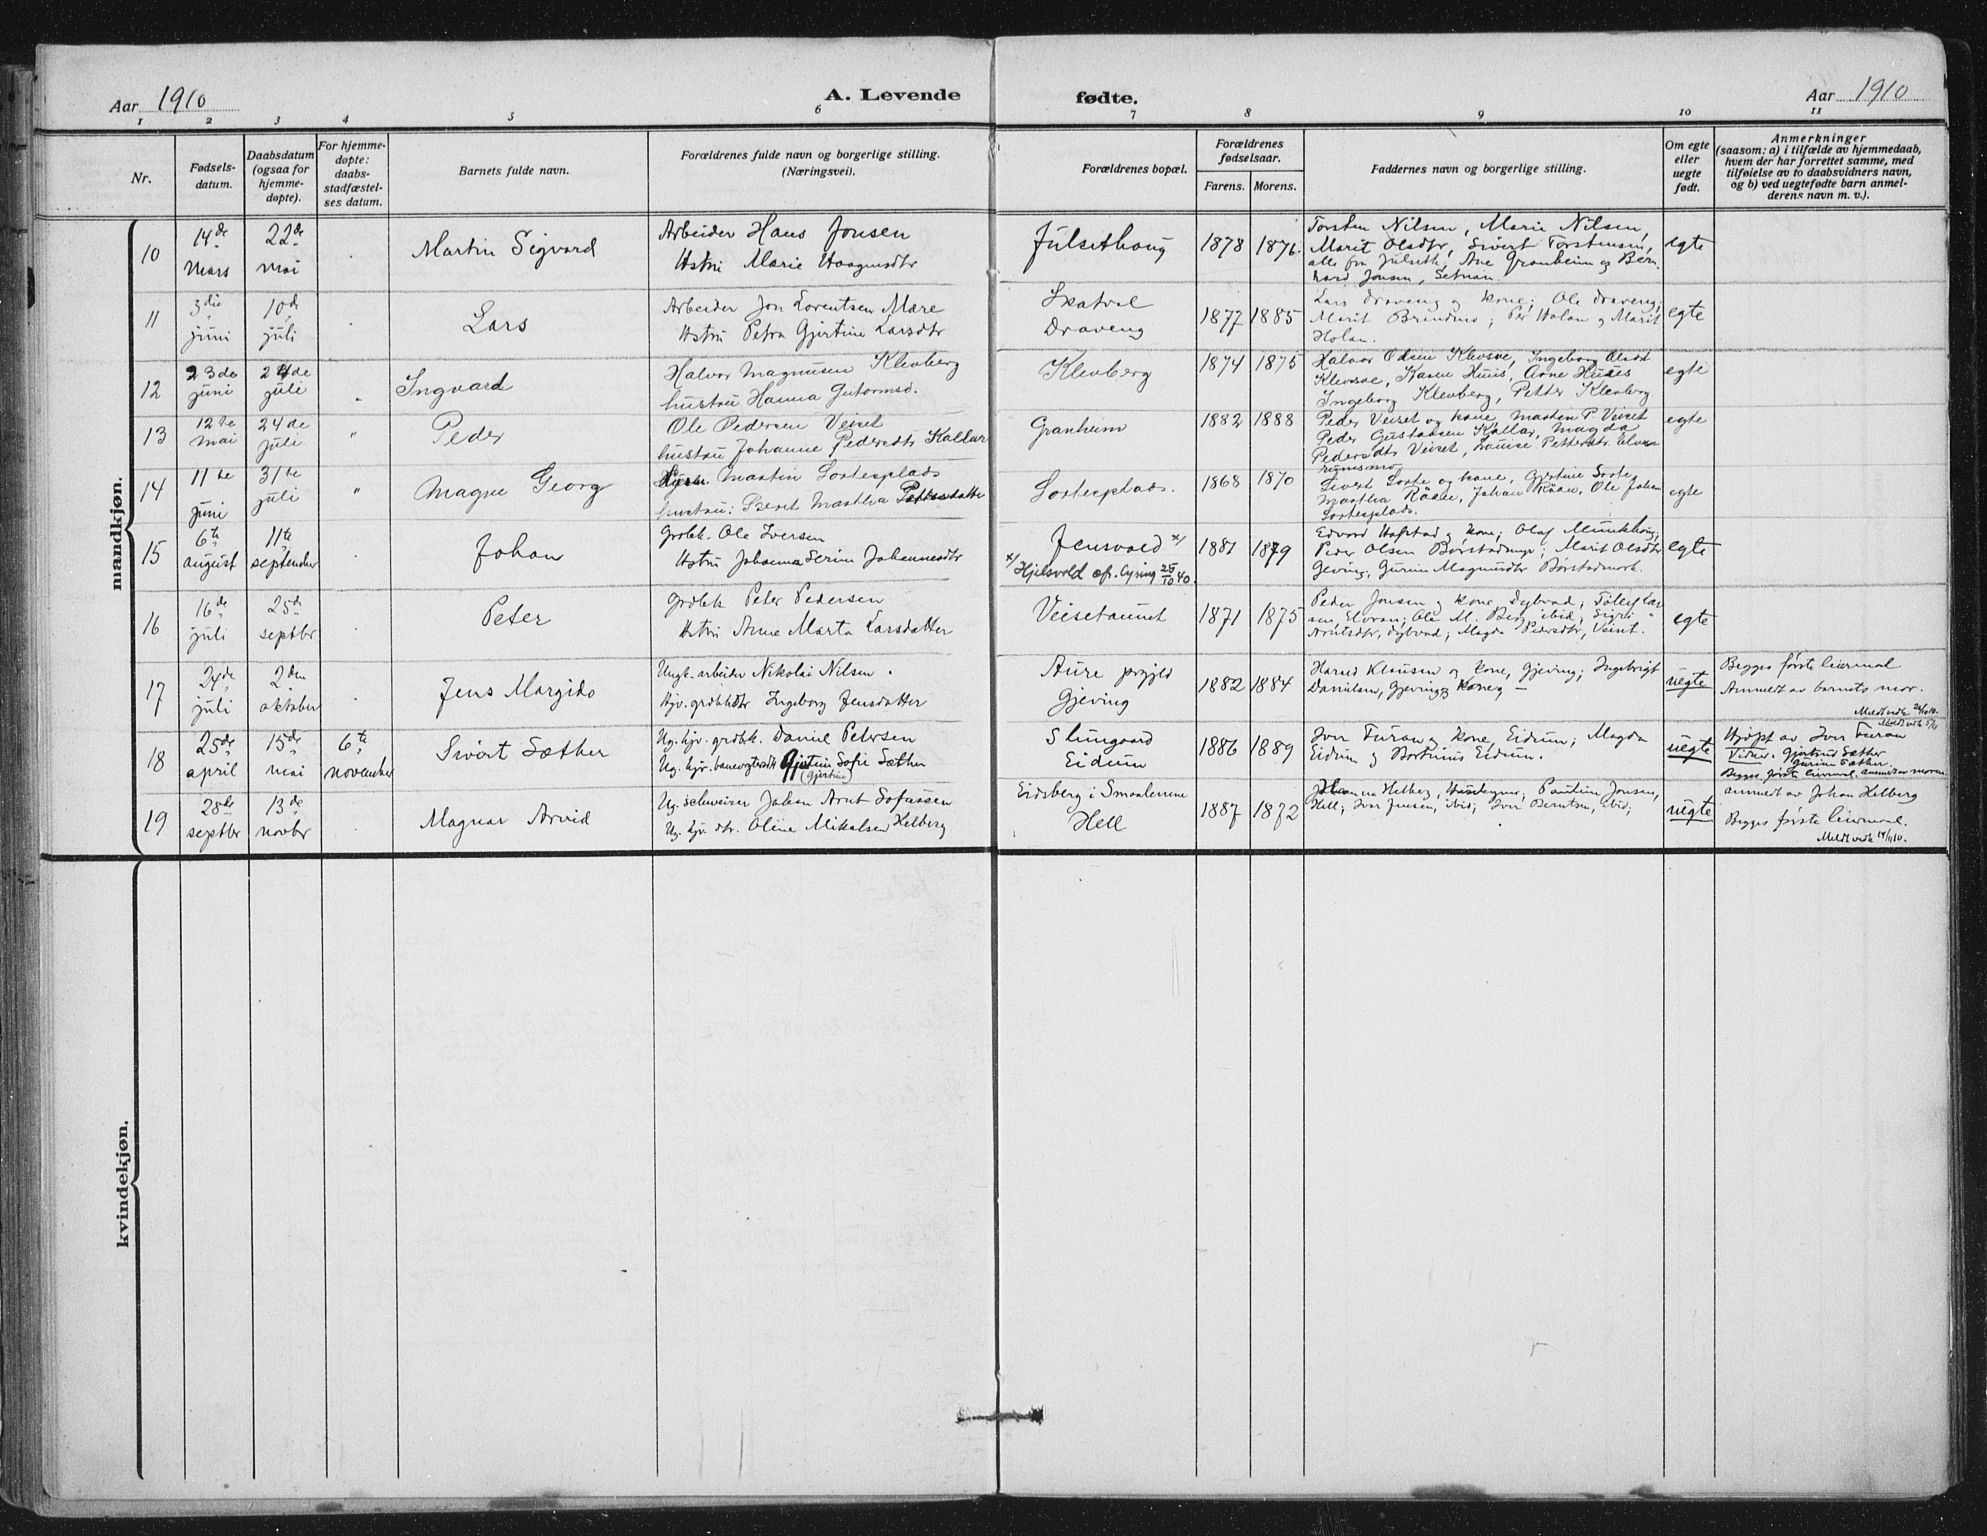 Aar 1910
A. Levende
fødte.
Aar 1910
1 2 3 4 5 6 7 8 9 10 11
Nr.
Fødsels-
datum.
Daabsdatum
(ogsaa for
hjemme-
døpte).
For hjemme-
døpte:
daabs-
stadfæstel-
ses datum.
Barnets fulde navn.
Forældrenes fulde navn og borgerlige stilling.
(Næringsvei).
Forældrenes bopæl.
Forældrenes
fødselsaar.
Farens. Morens.
Faddernes navn og borgerlige stilling.
Om egte
eller
uegte
født.
Anmerkninger
(saasom: a) i tilfælde av hjemmedaab,
hvem der har forrettet samme, med
tilføielse av to daabsvidners navn,
og b) ved uegtefødte barn anmel-
derens navn m. v.).
mandkjøn.
10
14de
mars
22de
mai
Martin Sigvard
Arbeider Hans Jonsen
Hstru Marie Haagensdtr
Julsethaug
1878 1876.
Torsten Nilsen, Marie Nilsen,
Marit Olsdtr, Sivert Torstensen,
alle fra Julseth; Ane Granheim og Bern-
hard Jonsen, Setnan.
egte
11
3die
juni
10de
juli
Lars
Arbeider Jon Lorentsen Mære
Hstru Petra Gjertine Larsdtr
Skatval
Draveng
1877 1885
Lars Draveng og kone; Ole Draveng;
Marit Brendmo; Per Holan og Marit
Holan.
egte
12
23de
juni
24de
juli
Ingvard
Halvor Magnusen Klevberg
hustru Hanna Gutormsd.
Klevberg
1874 1875
Halvor Odin Klevsve, Ingeborg Olsdt
Klevsve, Karen Huus, Arne Huses
Ingeborg Klevberg, Petter Klevberg
egte
13
12te
mai
24de
juli
"
Peder
Ole Pedersen Veiset
hustru Johanne Pedersdtr Kallar
Granheim
1882 1888
Peder Veiset og kone, Martin P. Veiset
Peder Gustavsen Kallar, Magda
Pedersdtr Veiset, Louise Pettersdtr Elvran
rumsmo
egte
14
11te
juni
31te
juli
"
Magne Georg
Martin Sortesplads
hustru: Beret Martha Pettersdatter
Sortesplads.
1868 1870
Sivert Sorte og kone, Gjertine Sorte
Martha Råan, Johan Råan, Ole Johan
Sortesplads.
egte
15
6te
august
11te
september
Johan
Grdbk. Ole Iversen
Hstru Johanna Serine Johannesdtr
Jensvold x/
x/ Hjelsvold efr. Lysing 25/10 40.
1881 1879
Edvard Hofstad og kone; Olaf Munkhaug;
Peder Olsen Børstadmyr; Marit Olsdtr
Geving; Gurine Magnusdtr Børstadmark.
egte
16
16de
juli
25de
septbr
Peter
Grdbk Peter Pedersen
Hstru Anne Marta Larsdatter
Veisetaunet
1871 1875
Peder Jonsen og kone, Dybvad; Tollef Lar-
sen, Elvran; Ole M. Berg, ibid; Sigri
Arntsdtr, Dybvad; Magda Pedersdtr, Veiset.
egte
17
24de
juli
2den
oktober
Jens Margido
Ungk. arbeider Nikolai Nilsen.
Hjv. grdbkdtr Ingeborg Jensdatter
Aure prgjld
Gjeving
1882 1884
Harald Klausen og kone, Gjeving; Ingebrigt
Danielsen, Gjeving og kone
uegte
Begges første leiermaal
Anmeldt av barnets mor.
Meldt vedk 24/10 10.
18
25de
april
15de
mai
6te
november
Sivert Sæther
Ug. hjv. grdbk. Daniel Petersen
Ug. hjv. banevogterdtr Gjertine Sofie Sæther
(Gjertine)
Slungaard
Eidum
1886 1889
Iver Furan og kone, Eidum; Magda
Eidum og Bortinus Eidum.
uegte
Hjdøpt av Iver Furan
Vidner. Gjertrud Sæther
Gurine Sæther.
Begges første leiermaal. anmeldt av moren
19
28de
septbr
13de
novbr
Magnar Arvid
Ug. schweiser Johan Arnt Sofussen
Ug. hjv. dtr. Oline Mikalsen Helberg
Eidsberg i Smaalenene
Hell
1887 1872
Johanna Helberg, Husebymyr; Pauline Jonsen,
Hell; Iver Jensen, ibid; Iver Berntsen, ibid;
uegte
anmeldt av Johan Helberg
Begges første leiermaal.
Meldt vedk 14/11 10.
kvindekjøn.